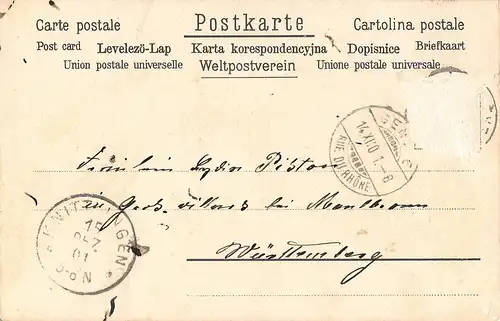 Carte postale Postkarte Cartolina postale
Post card Levelező-Lap Karta korespondencyjna Dopisnice Briefkaart
Union postale universelle Weltpostverein Unione postale universale
GENÈVE
14.XII.01
RUE DU RHÔNE
Fräulein Lydia Piston
in Groß-villars bei Maulbronn
Württemberg
KNITTLINGEN
15 DEZ. 01
5-6 N